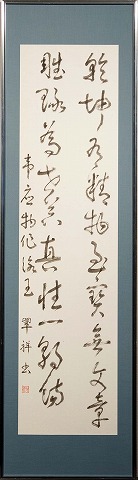 乾坤有精物至寶無文章
雕琢為世器真性一朝傷
韋應物作詠玉 翠祥書